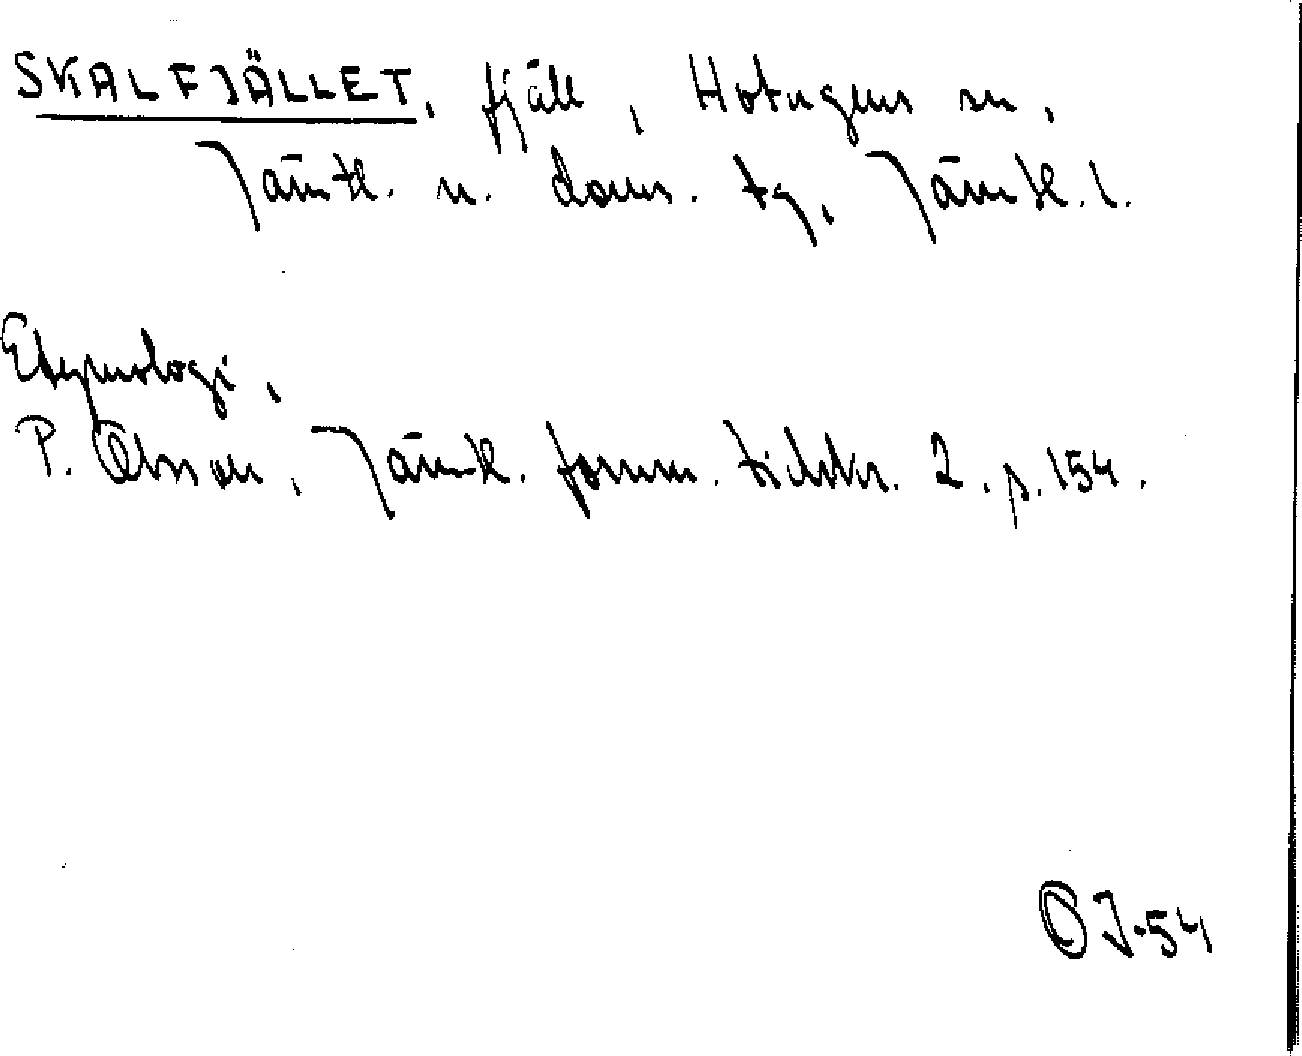 SKALFJÄLLET, fjäll, Hotagens sn,
Jämtl. n. doms. tg, Jämtl. l.
Etymologi,
P. Olsson, Jämtl. fornm. tidskr. 2. p. 154.
OJ-54